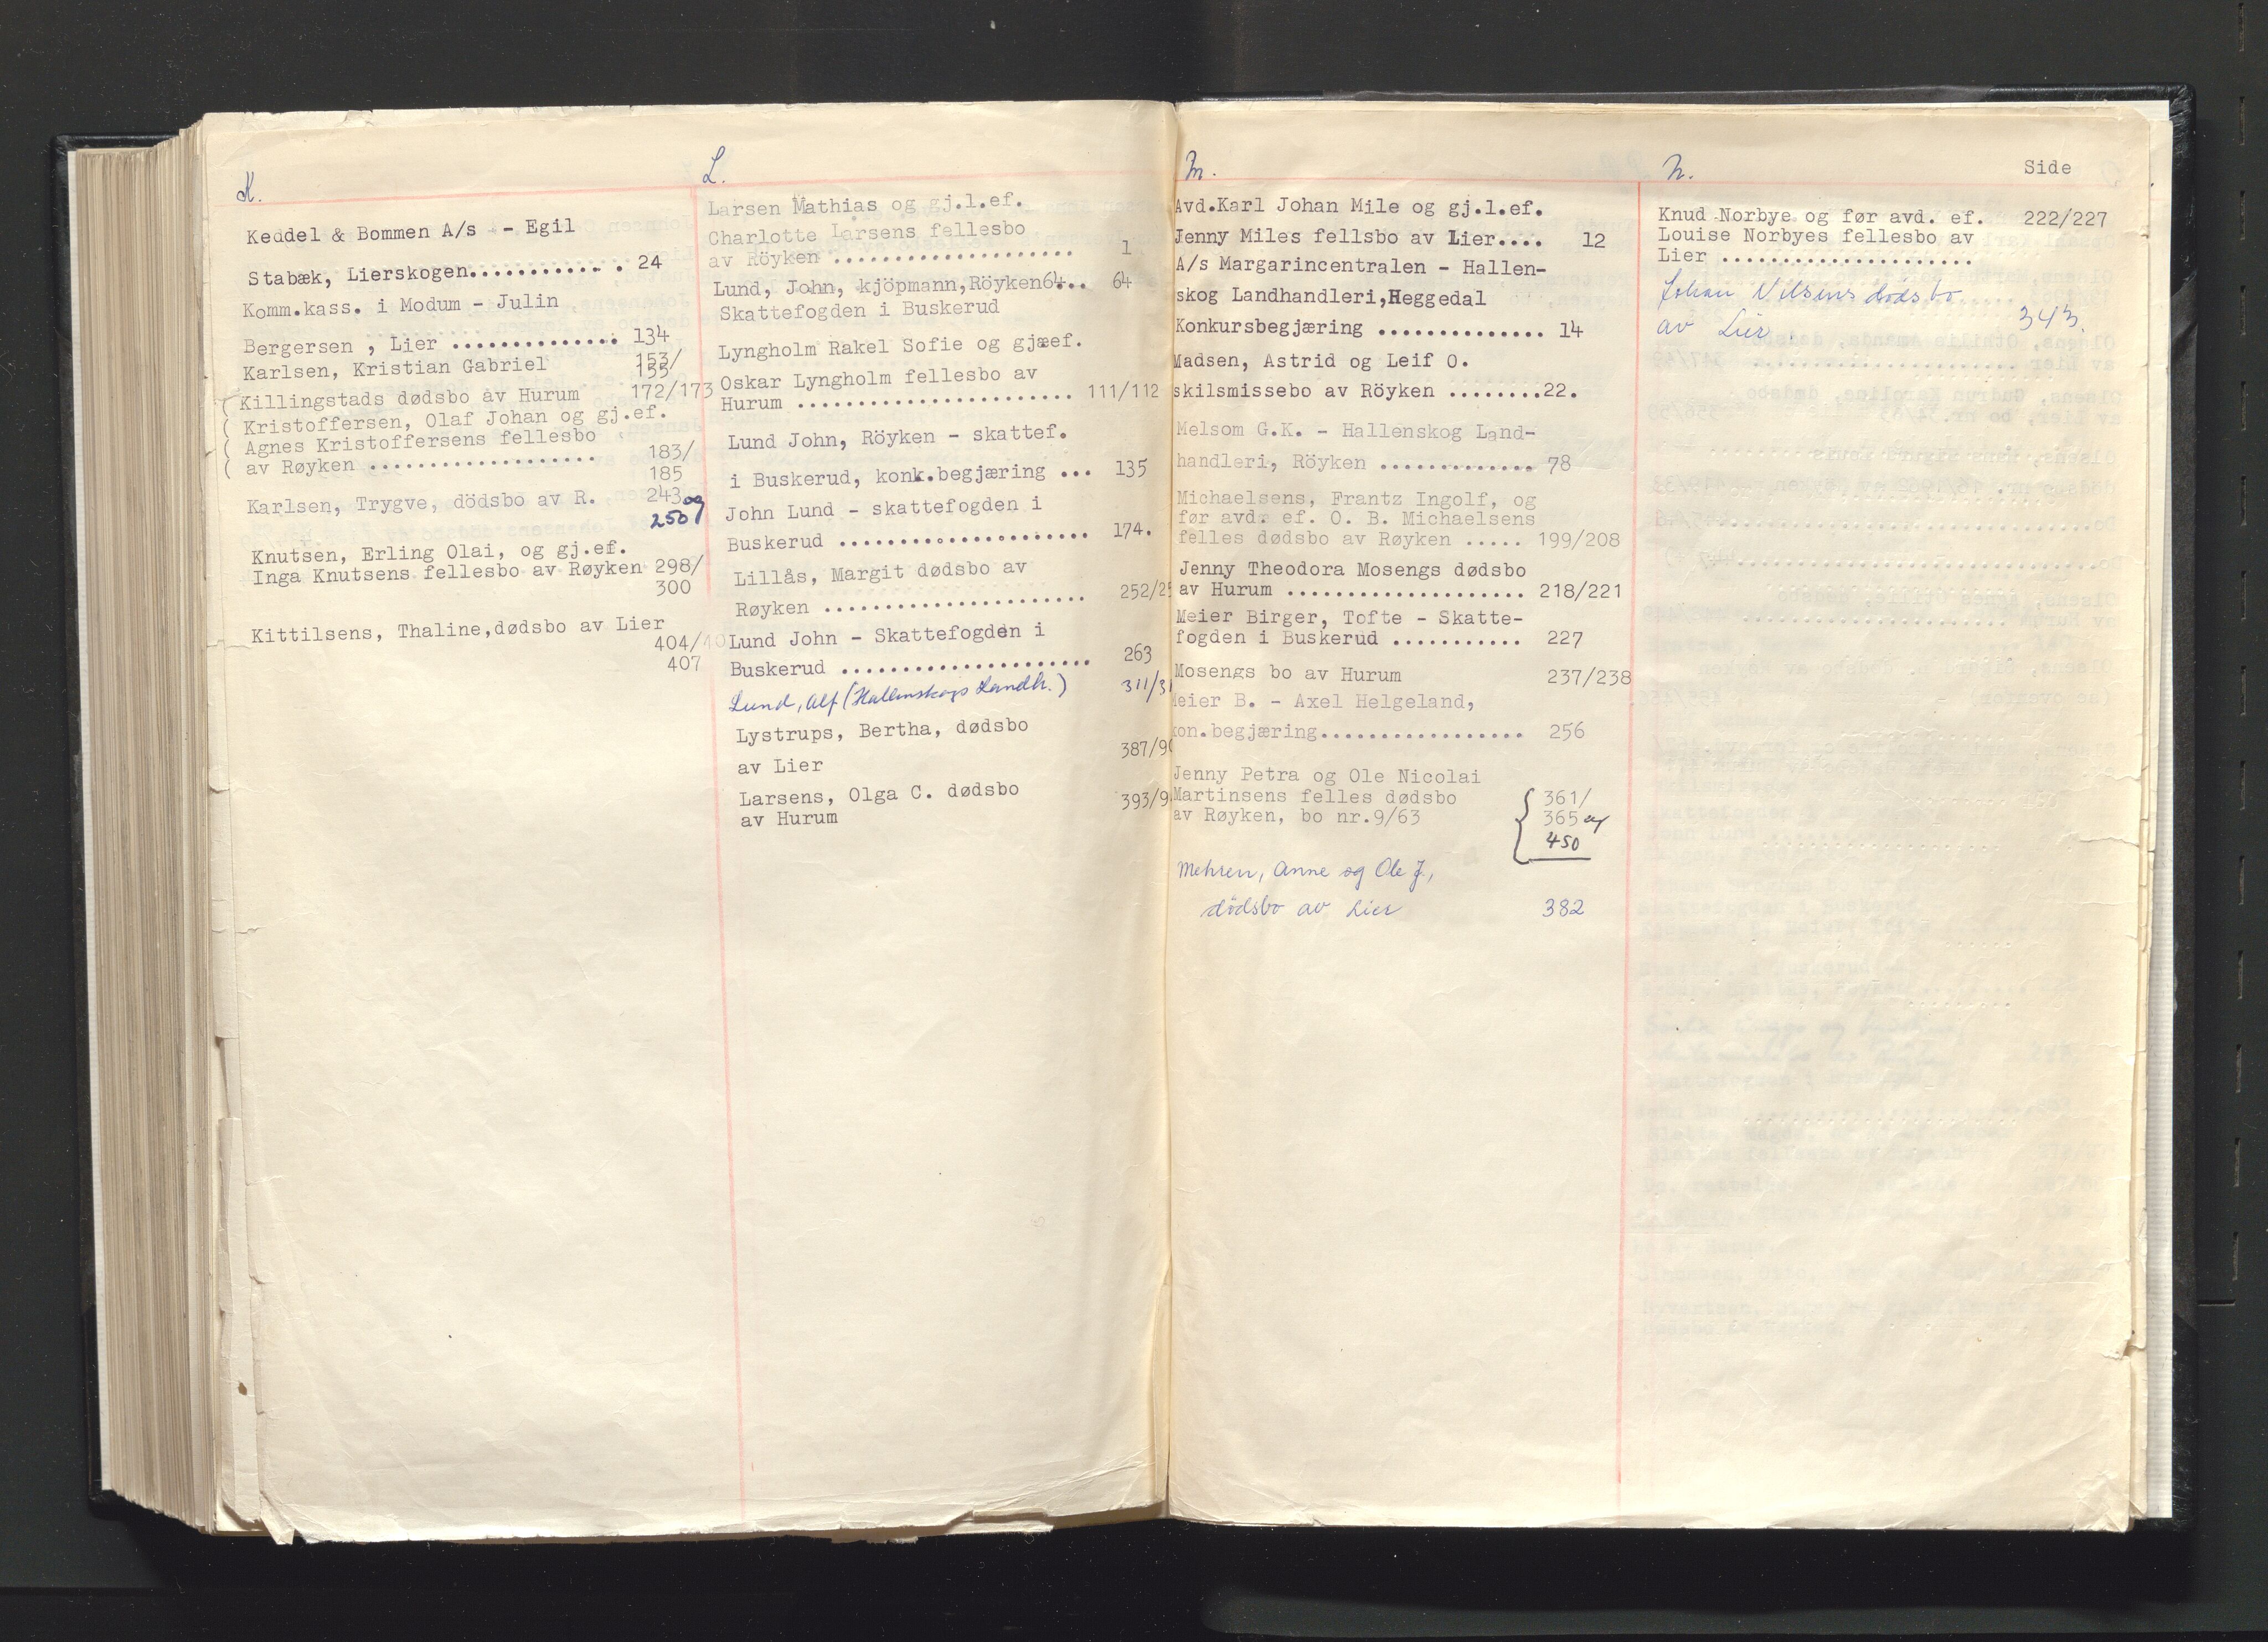 K.
Keddel & Bommen A/s - Egil
Stabæk, Lierskogen............ 24
Komm.kass. i Modum - Julin
Bergersen , Lier .............. 134
Karlsen, Kristian Gabriel 153/
155
Killingstads dødsbo av Hurum 172/173
( Kristoffersen, Olaf Johan og gj.ef.
( Agnes Kristoffersens fellesbo
( av Røyken ................... 183/
185
Karlsen, Trygve, dödsbo av R. 243 og
250
Knutsen, Erling Olai, og gj.ef.
Inga Knutsens fellesbo av Røyken 298/
300
Kittilsens, Thaline,dødsbo av Lier
404/
407
L.
Larsen Mathias og gj.l.ef.
Charlotte Larsens fellesbo
av Röyken .................... 1
Lund, John, kjöpmann,Röyken64... 64
Skattefogden i Buskerud
Lyngholm Rakel Sofie og gjæef.
Oskar Lyngholm fellesbo av
Hurum ....................... 111/112
Lund John, Röyken - skattef.
i Buskerud, konk.begjæring ... 135
John Lund - skattefogden i
Buskerud ..................... 174.
Lillås, Margit dødsbo av
Røyken ...................... 252/25
Lund John - Skattefogden i
Buskerud ..................... 263
Lund, Alf (Hallenskogs Landh.) 311/31
Lystrups, Bertha, dødsbo
av Lier 387/90
Larsens, Olga C. dødsbo
av Hurum 393/9
M.
Avd.Karl Johan Mile og gj.l.ef.
Jenny Miles fellsbo av Lier.... 12
A/s Margarincentralen - Hallen-
skog Landhandleri,Heggedal
Konkursbegjæring .............. 14
Madsen, Astrid og Leif O.
skilsmissebo av Röyken ........22.
Melsom G.K. - Hallenskog Land-
handleri, Röyken ............. 78
Michaelsens, Frantz Ingolf, og
før avd. ef. O. B. Michaelsens
felles dødsbo av Røyken ..... 199/208
Jenny Theodora Mosengs dødsbo
av Hurum .................... 218/221
Meier Birger, Tofte - Skatte-
fogden i Buskerud ........... 227
Mosengs bo av Hurum 237/238
Meier B. - Axel Helgeland,
kon.begjæring................. 256
Jenny Petra og Ole Nicolai
Martinsens felles dødsbo 361/
av Røyken, bo nr.9/63 365 og
450
Mehren, Anne og Ole J.,
dödsbo av Lier 382
N. Side
Knud Norbye og før avd. ef. 222/227
Louise Norbyes fellesbo av
Lier .....................
Johan Nilsens dødsbo
av Lier 343.